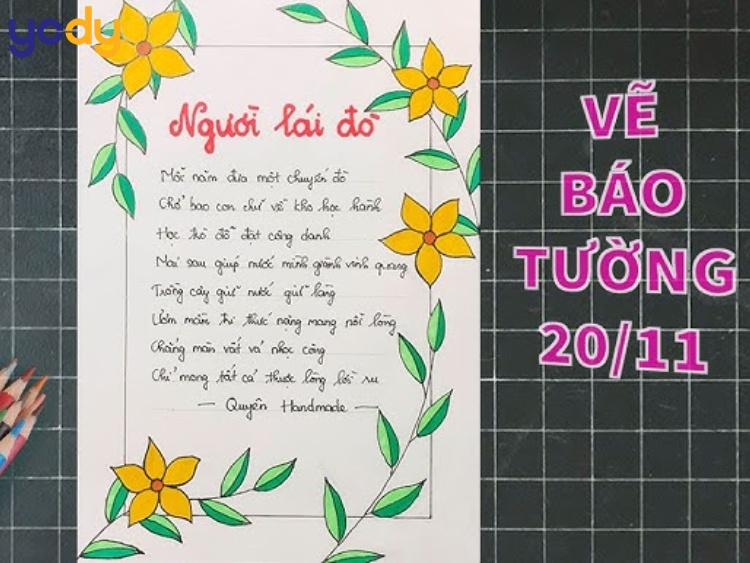 yody
Người lái đò
Mỗi năm đưa một chuyến đò
Chở bao con chữ về kho học hành
Học trò đỗ đạt công danh
Mai sau giúp nước mình giành vinh quang
Trồng cây giữ nước giữ làng
Ươm mầm tri thức nặng mang nỗi lòng
Chẳng màn vất vả nhọc công
Chỉ mong tất cả thuộc lòng lời ru
— Quyên Handmade —
VẼ
BÁO
TƯỜNG
20/11